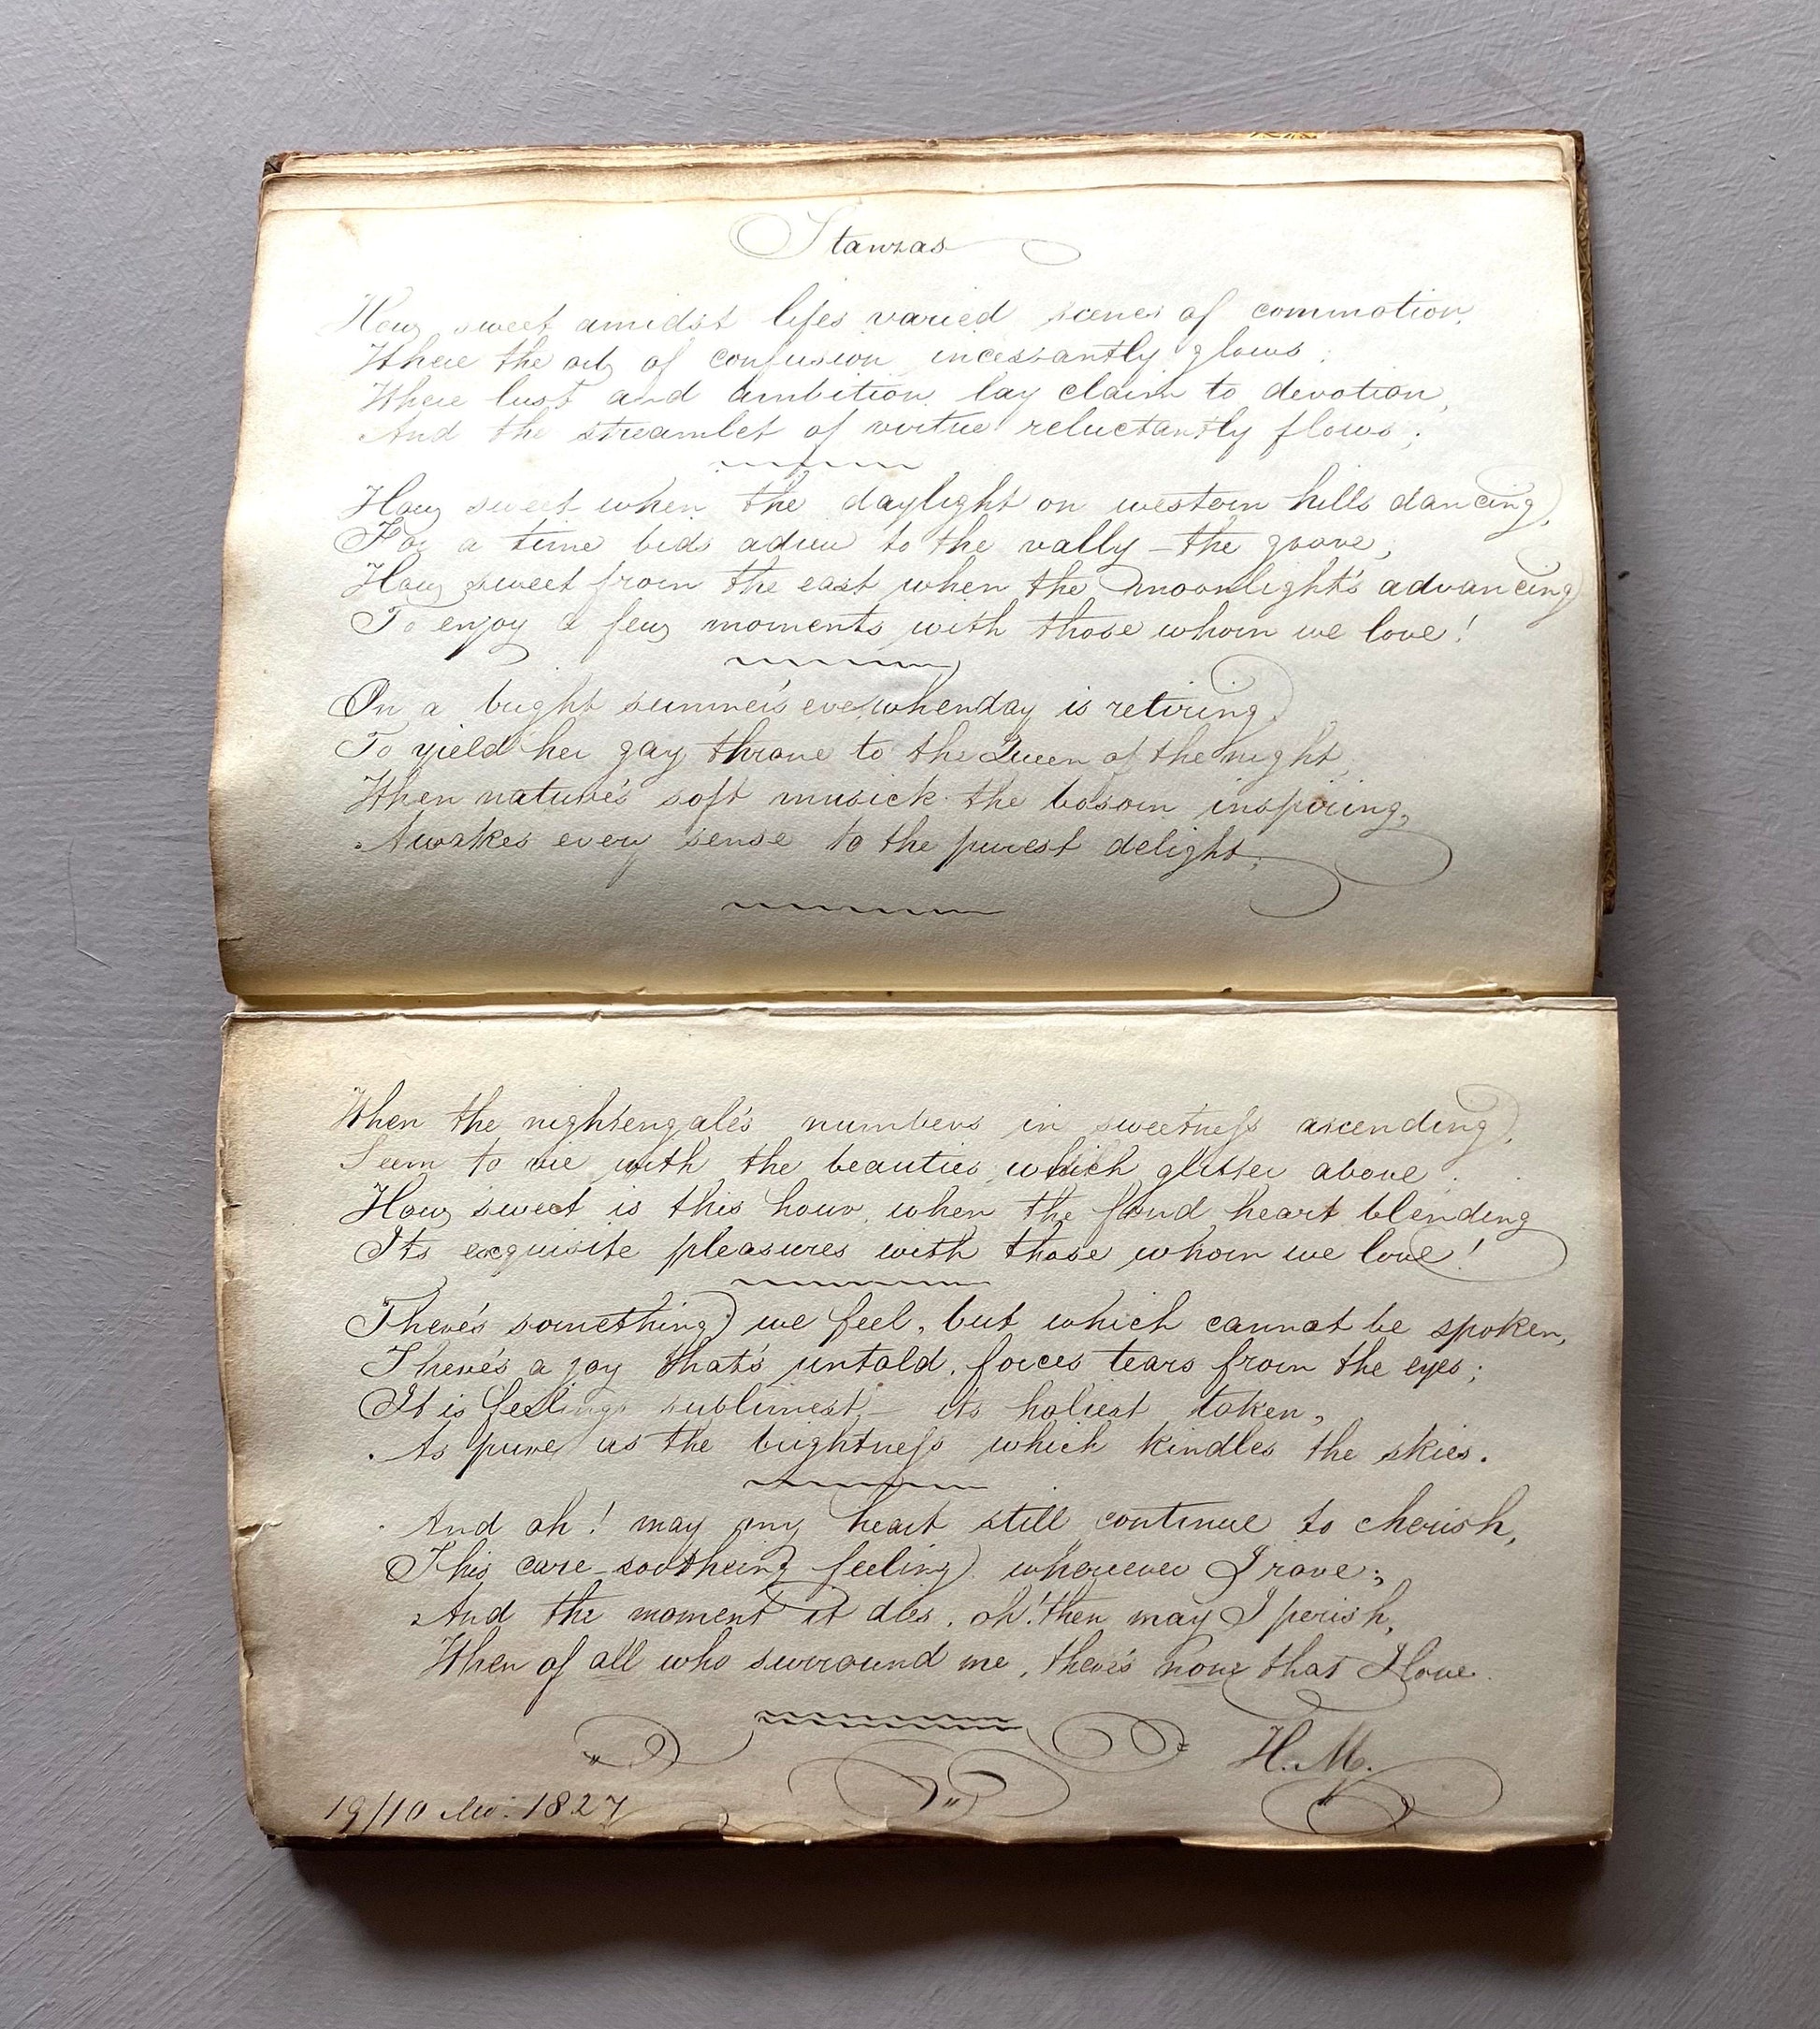 Stanzas
How sweet amidst lifes varied scenes of commotion,
Where the orb of confusion incessantly glows;
Where lust and ambition lay claim to devotion,
And the streamlet of virtue reluctantly flows;
How sweet when the daylight on western hills dancing,
For a time bids adieu to the vally – the grove,
How sweet from the east when the moonlight's advancing
To enjoy a few moments with those whom we love!
On a bright summer's eve when day is retiring,
To yield her gay throne to the Queen of the night,
When nature's soft musick the bosom inspiring,
Awakes every sense to the purest delight;
When the nightengale's numbers in sweetness ascending,
Seem to vie with the beauties which glitter above.
How sweet is this hour, when the fond heart blending
Its exquisite pleasures with those whom we love!
There's something we feel, but which cannot be spoken,
There's a joy that's untold, forces tears from the eyes;
It is feelings sublimest – its holiest token,
As pure as the brightness which kindles the skies.
And oh! may my heart still continue to cherish,
This care-sootheing feeling wherever I rove;
And the moment it dies, oh! then may I perish,
When of all who surround me, there's none that I love.
H.M.
19/10 Mo: 1827